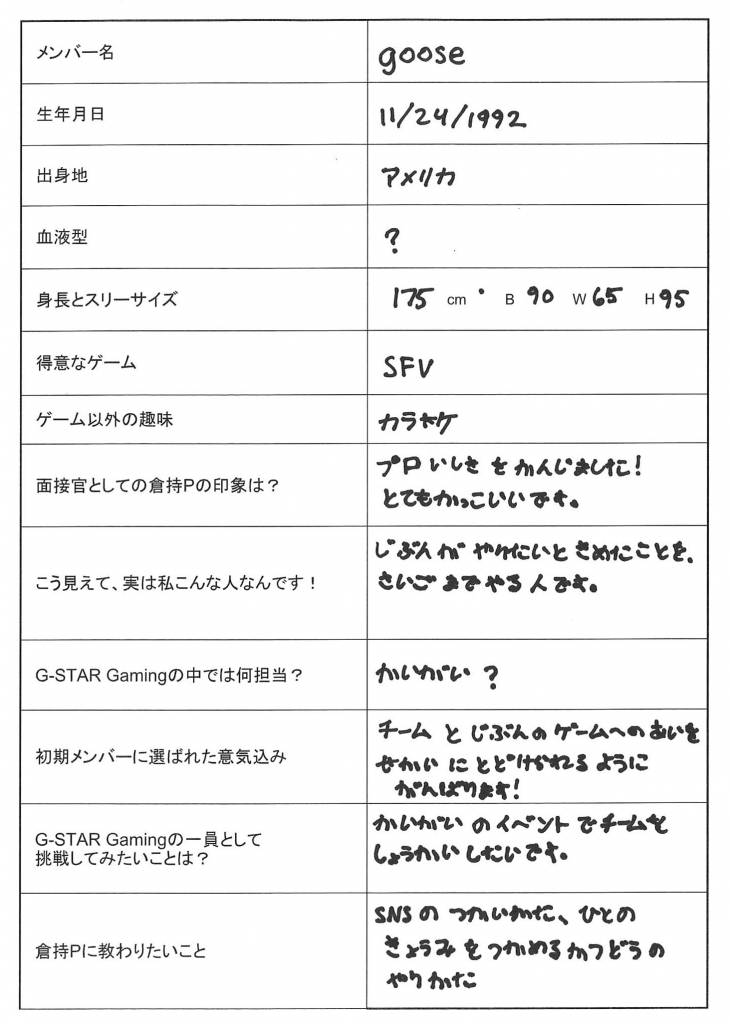 メンバー名
goose
生年月日
11/24/1992
出身地
アメリカ
血液型
?
身長とスリーサイズ
175 cm B 90 W 65 H 95
得意なゲーム
SFV
ゲーム以外の趣味
カラオケ
面接官としての倉持Pの印象は？
プロいしきをかんじました!
とてもかっこいいです。
こう見えて、実は私こんな人なんです！
じぶんがやりたいときめたことを、
さいごまでやる人です。
G-STAR Gamingの中では何担当？
かいがい?
初期メンバーに選ばれた意気込み
チームとじぶんのゲームへのあいを
せかいにとどけられるように
がんばります!
G-STAR Gamingの一員として
挑戦してみたいことは？
かいがいのイベントでチームを
しょうかいしたいです。
倉持Pに教わりたいこと
SNSのつかいかた、ひとの
きょうみをつかめるかつどうの
やりかた